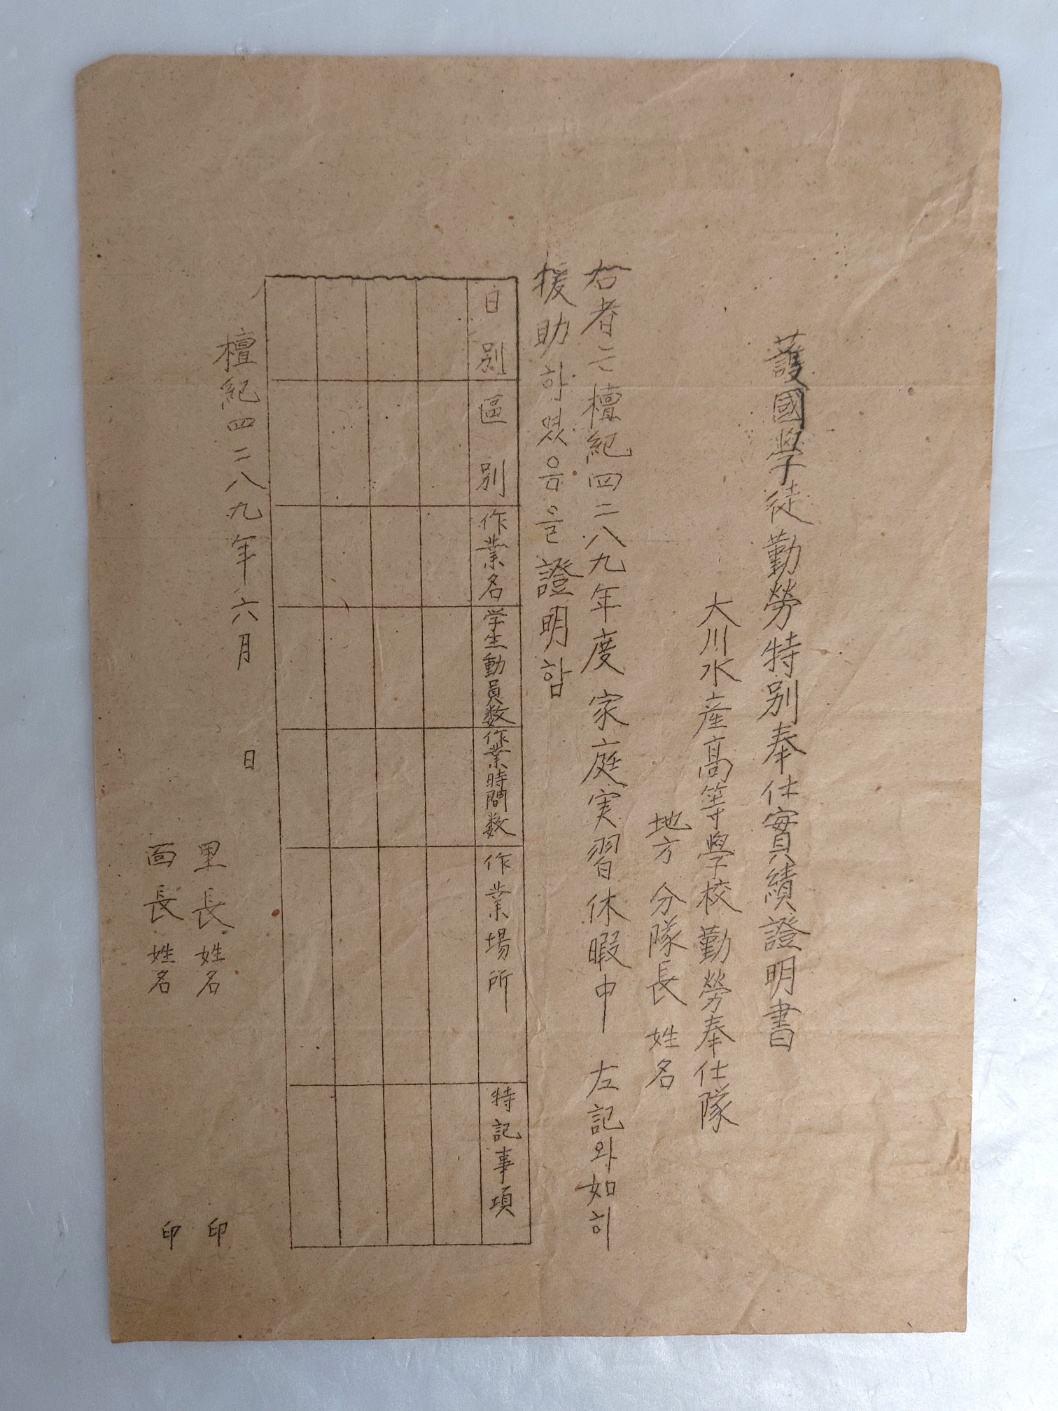 護國學徒勤勞特別奉仕實績證明書
大川水産高等學校勤勞奉仕隊
地方 分隊長 姓名
右者는檀紀四二八九年度家庭実習休暇中 左記와如히
援助하였음을證明함
日別
區別
作業名
学生動員数
作業時間数
作業場所
特記事項
檀紀四二八九年六月 日
里長 姓名 印
面長 姓名 印